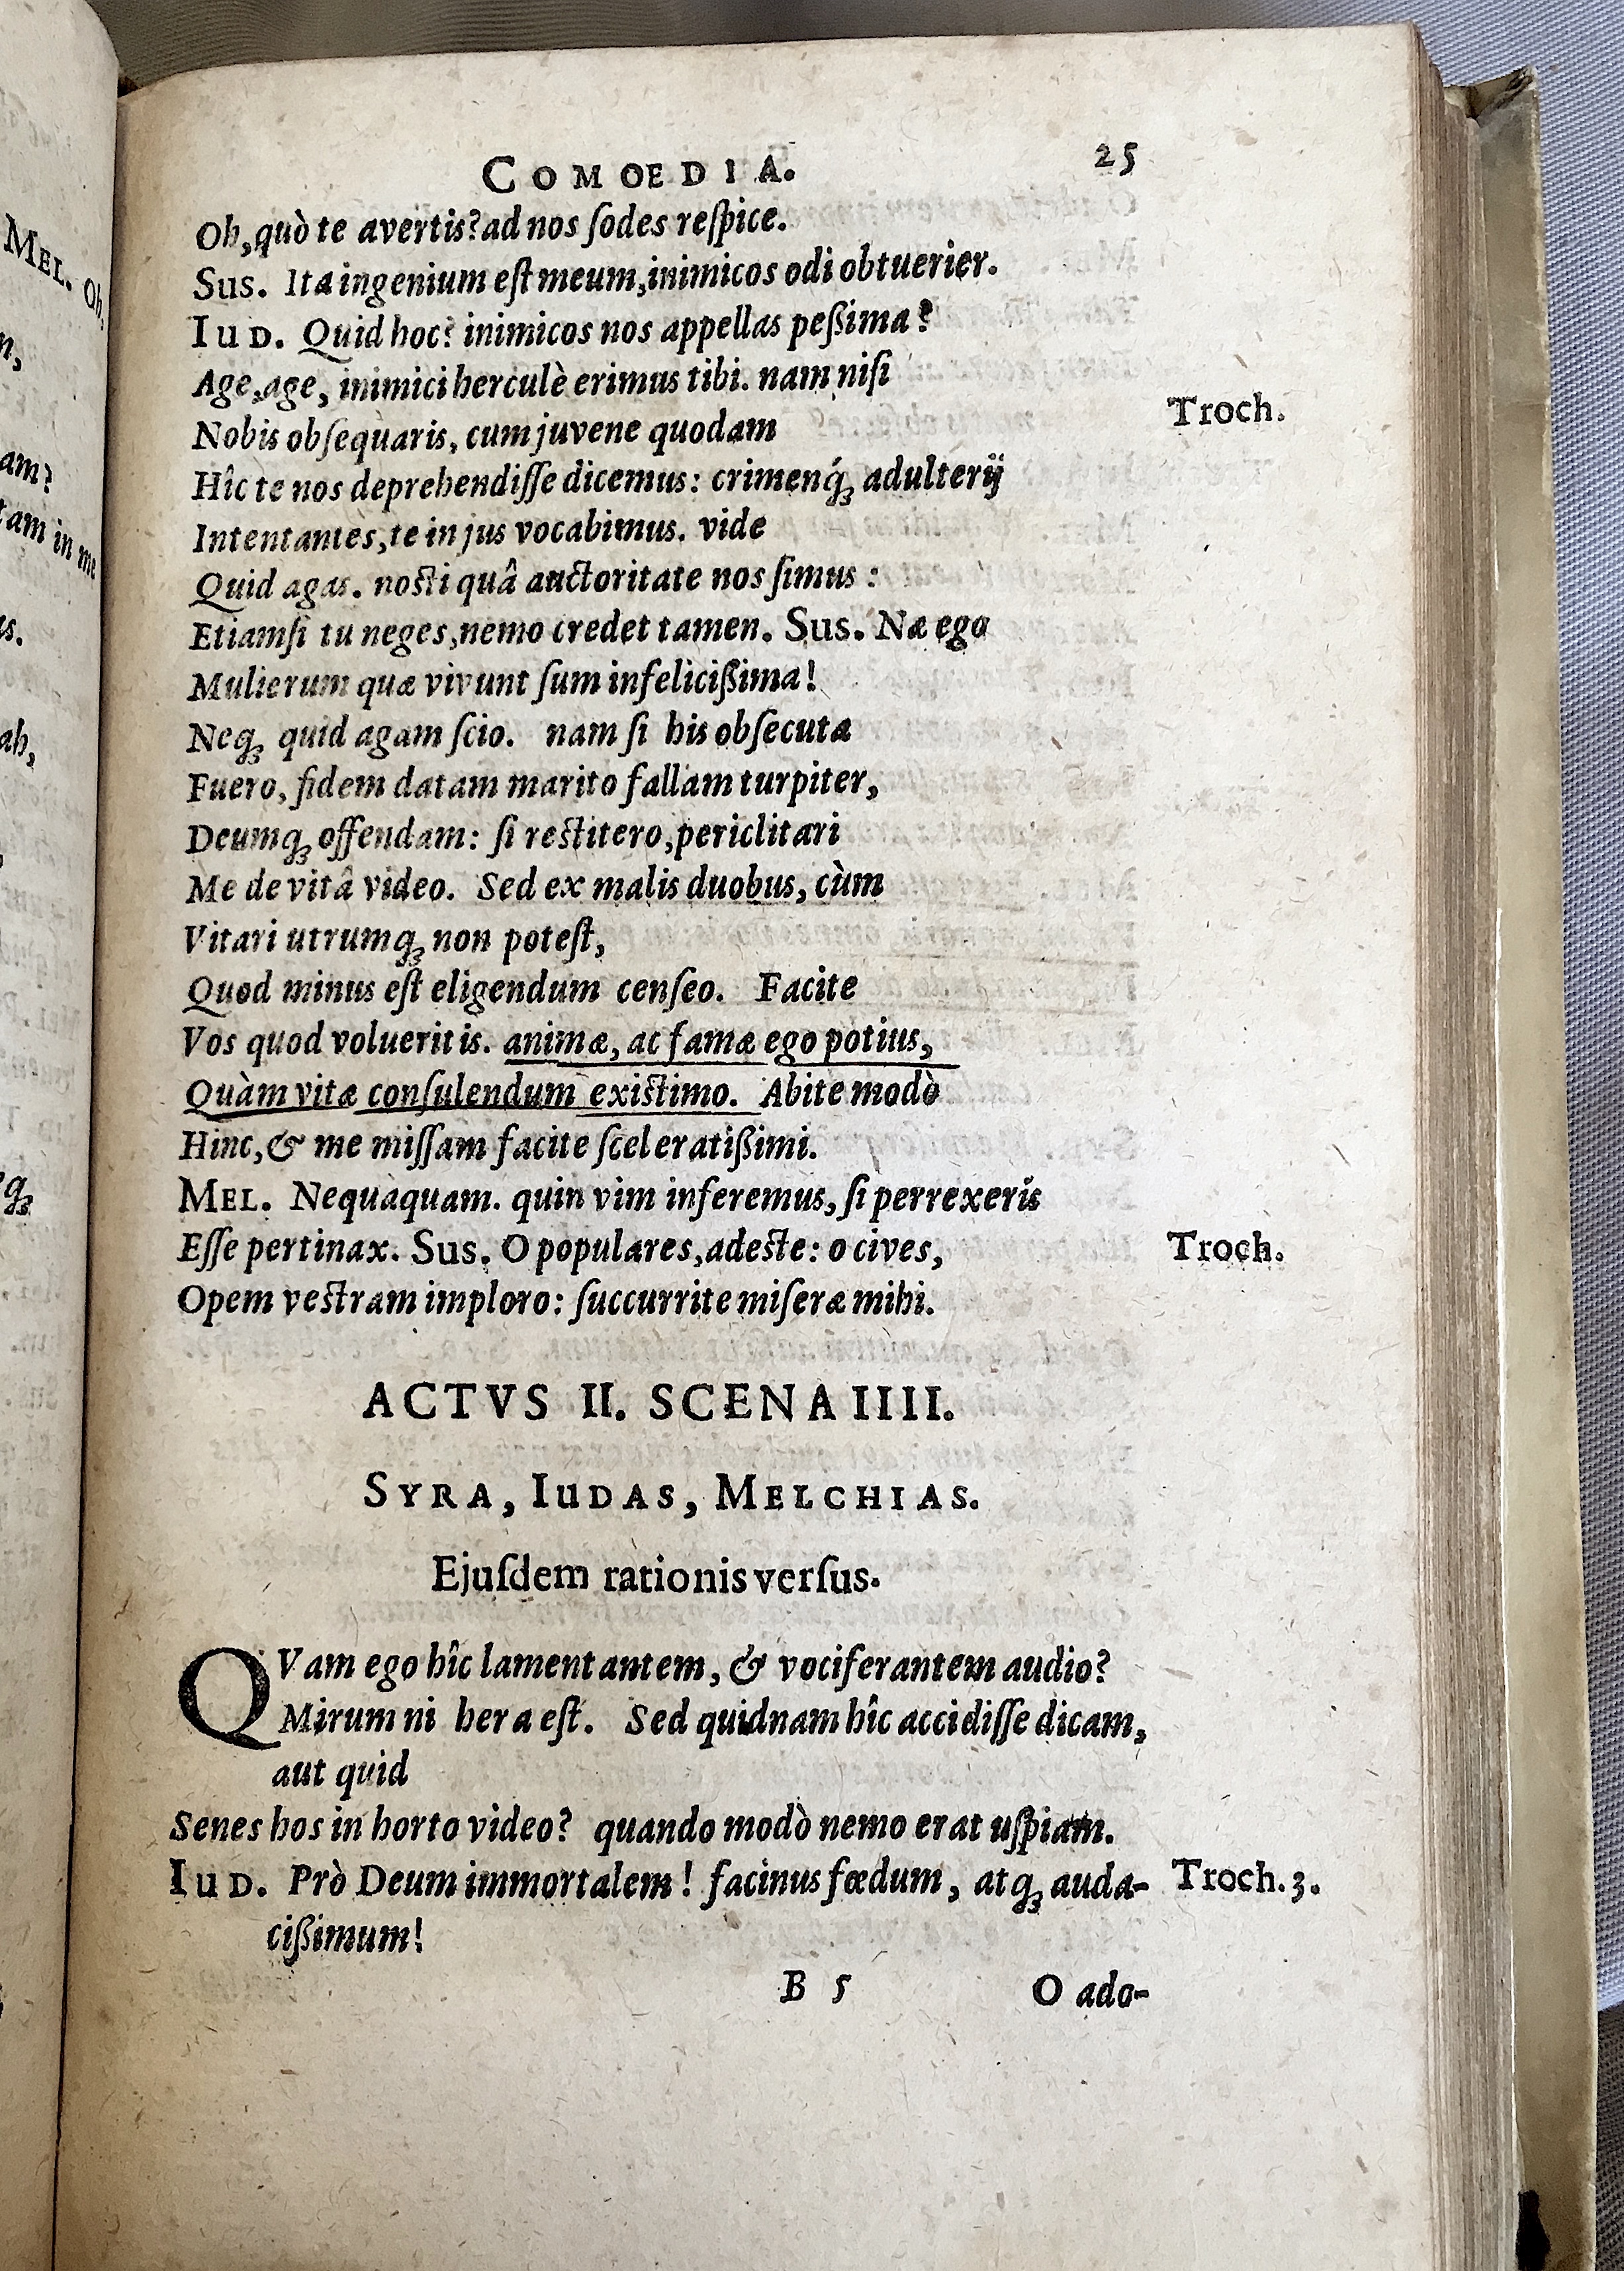 COMOEDIA. 25
Oh, quò te avertis? ad nos ſodes reſpice.
Sus. Ita ingenium eſt meum, inimicos odi obtuerier.
Iud. Quid hoc? inimicos nos appellas peßima?
Age, age, inimici herculè erimus tibi. nam niſi
Troch.
Nobis obſequaris, cum juvene quodam
Hîc te nos deprehendiſſe dicemus: crimenq́ꝫ adulterij
Intentantes, te in jus vocabimus. vide
Quid agas. noſti quâ auctoritate nos ſimus:
Etiamſi tu neges, nemo credet tamen. Sus. Næ ego
Mulierum quæ vivunt ſum infelicißima!
Neqꝫ quid agam ſcio. nam ſi his obſecuta
Fuero, fidem datam marito fallam turpiter,
Deumqꝫ offendam: ſi reſtitero, periclitari
Me de vitâ video. Sed ex malis duobus, cùm
Vitari utrumqꝫ non poteſt,
Quod minus eſt eligendum cenſeo. Facite
Vos quod volueritis. animæ, ac famæ ego potius,
Quàm vitæ conſulendum exiſtimo. Abite modò
Hinc, & me miſſam facite ſceleratißimi.
MEL. Nequaquam. quin vim inferemus, ſi perrexeris
Eſſe pertinax. Sus. O populares, adeſte: o cives,
Troch.
Opem veſtram imploro: ſuccurrite miſeræ mihi.
ACTVS II. SCENA IIII.
SYRA, IuDAS, MELCHIAS.
Ejuſdem rationis verſus.
QVam ego hîc lamentantem, & vociferantem audio?
Mirum ni hera eſt. Sed quidnam hîc accidiſſe dicam,
aut quid
Senes hos in horto video? quando modò nemo erat uſpiam.
IuD. Prò Deum immortalem! facinus fœdum, atqꝫ auda-
Troch. 3.
cißimum!
B 5 O ado-
MEL. Oh,
am?
tam in me
ah,